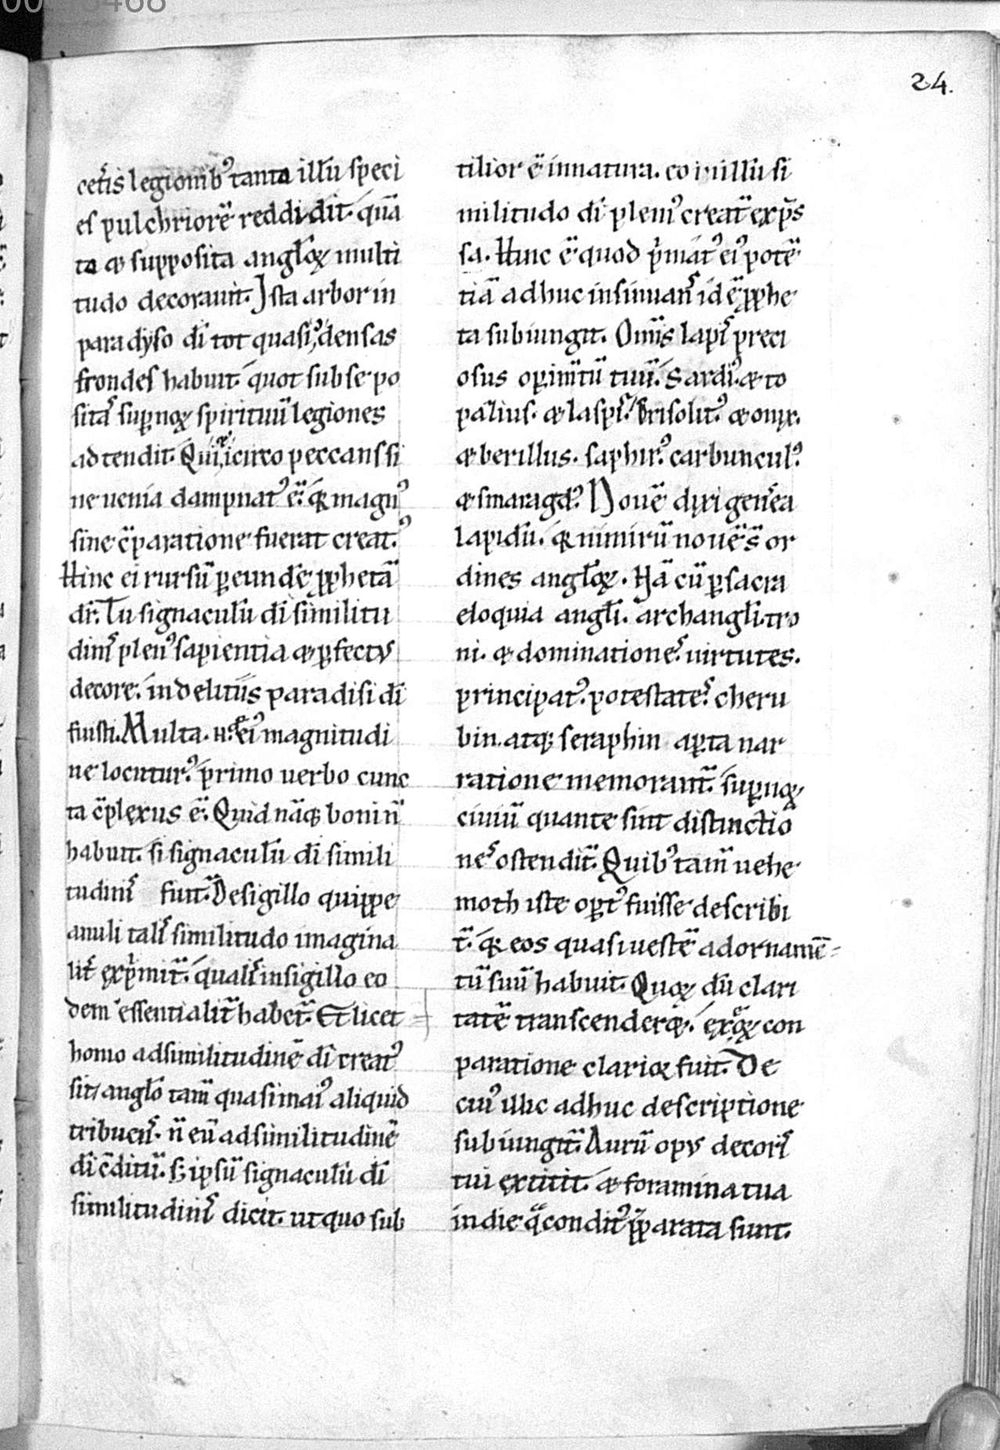 24.
cet̄is legionib᾽ tanta illū speci
es pulchriorē reddidit. quā
ta & supposita angl̄oꝝ multi
tudo decorauit. Ista arbor in
paradyso dī tot quasi 9densas
frondes habuit. quot sub se po
sitas̄ sup̄noꝝ spirituū legiones
adtendit. Qui icirco peccans si
ne uenia dampnat᾽ ē. q̄ magn᾽
sine c̄paratione fuerat creat᾽.
Hinc ei rursū p̄ eundē ꝓphetā
dr̄. Tu signaculū dī similitu
dinis plen᾽ sapientia & ꝑfectus
decore. in delitiis paradisi dī
fuisti. Multa n̄. ei᾽ magnitudi
ne locutur᾽. p̄rimo uerbo cunc
ta c̄plexus ē. Quid nāq; boni n̄
habuit. si signaculū dī simili
tudinis fuit. De sigillo quippe
anuli talis similitudo imagina
lit̄ exp̄mit̄. qualis in sigillo eo
dem essentialit̄ habet̄. Et licet
homo ad similitudinē dī creat᾽
sit. anglo tam̄ quasi mai᾽ aliquid
tribuens. n̄ eū ad similitudinē
dī c̄ditū. s; ipsū signaculū dī
similitudinis dicit. ut quo sub
tilior ē in natura. eo in illū si
militudo dī pleni᾽ creat̄ exp̄s
sa. Hinc ē quod p̄mat᾽ ei᾽ potē
tiā adhuc insinuans idē ꝓphe
ta subiungit. Om̄is lapis preci
osus oꝑim̄tū tuū. Sardi᾽. & to
palius. & Iaspis. Crisolit᾽. & onix.
& berillus. saphir᾽. carbuncul᾽.
& smaragd᾽. Nouē dixi gen̄a
lapidū. q̄ nimirū nouē s̄ or
dines angl̄oꝝ. Nā cū ꝑ sacra
eloquia angl̄i. archangl̄i. tro
ni. & dominationes. uirtutes.
principat᾽. potestates. cheru
bin. atq; seraphin aꝑta nar
ratione memorant̄. sup̄noꝝ
ciuiū quante sint distinctio
nes ostendit̄. Quib᾽ tam̄ uehe
moth iste oꝑt᾽ fuisse describi
t̄. q̄ eos quasi uestē ad ornamē
tū suū habuit. Quoꝝ dū clari
tatē transcenderet. ex eoꝝ con
paratione clarior fuit. De
cui᾽ illic adhuc descriptione
subiungit̄. Aurū opus decoris
tui extitit. & foramina tua
in die q̄ condit᾽ es p̄parata sunt.